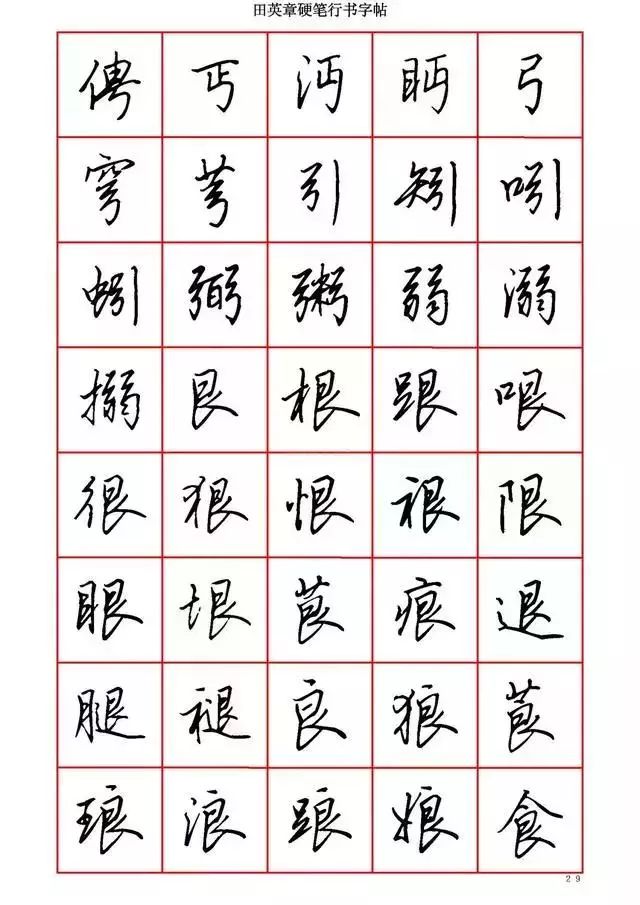 田英章硬笔行书字帖
俜 丏 沔 眄 弓
穹 芎 引 矧 吲
蚓 弼 粥 弱 溺
搦 艮 根 跟 哏
很 狠 恨 裉 限
眼 垠 茛 痕 退
腿 褪 良 狼 莨
琅 浪 踉 娘 食
29